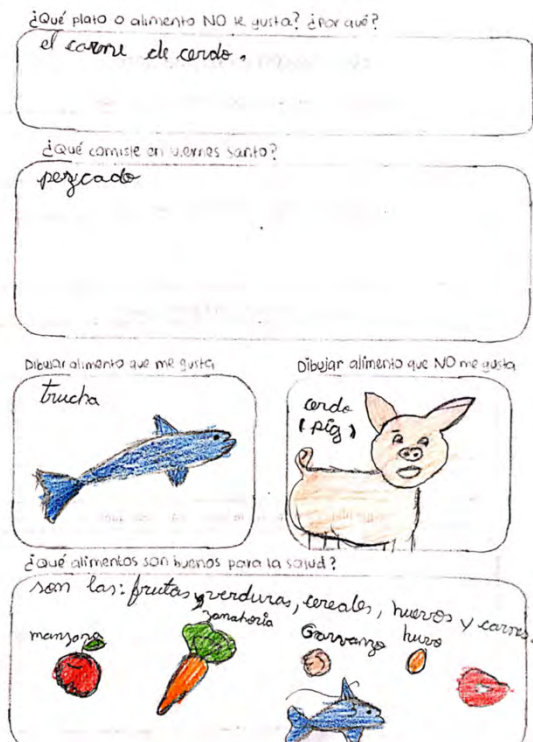 ¿Qué plato o alimento NO le gusta? ¿Por qué?
el carne de cerdo.
¿Qué comiste en viernes santo?
pezcado
Dibujar alimento que me gusta
Dibujar alimento que NO me gusta
trucha
cerdo
(pig)
¿Qué alimentos son buenos para la salud?
son las: frutas y verduras, cereales, huevos y carnes.
manzana
zanahoria
Garvanzo
huevo